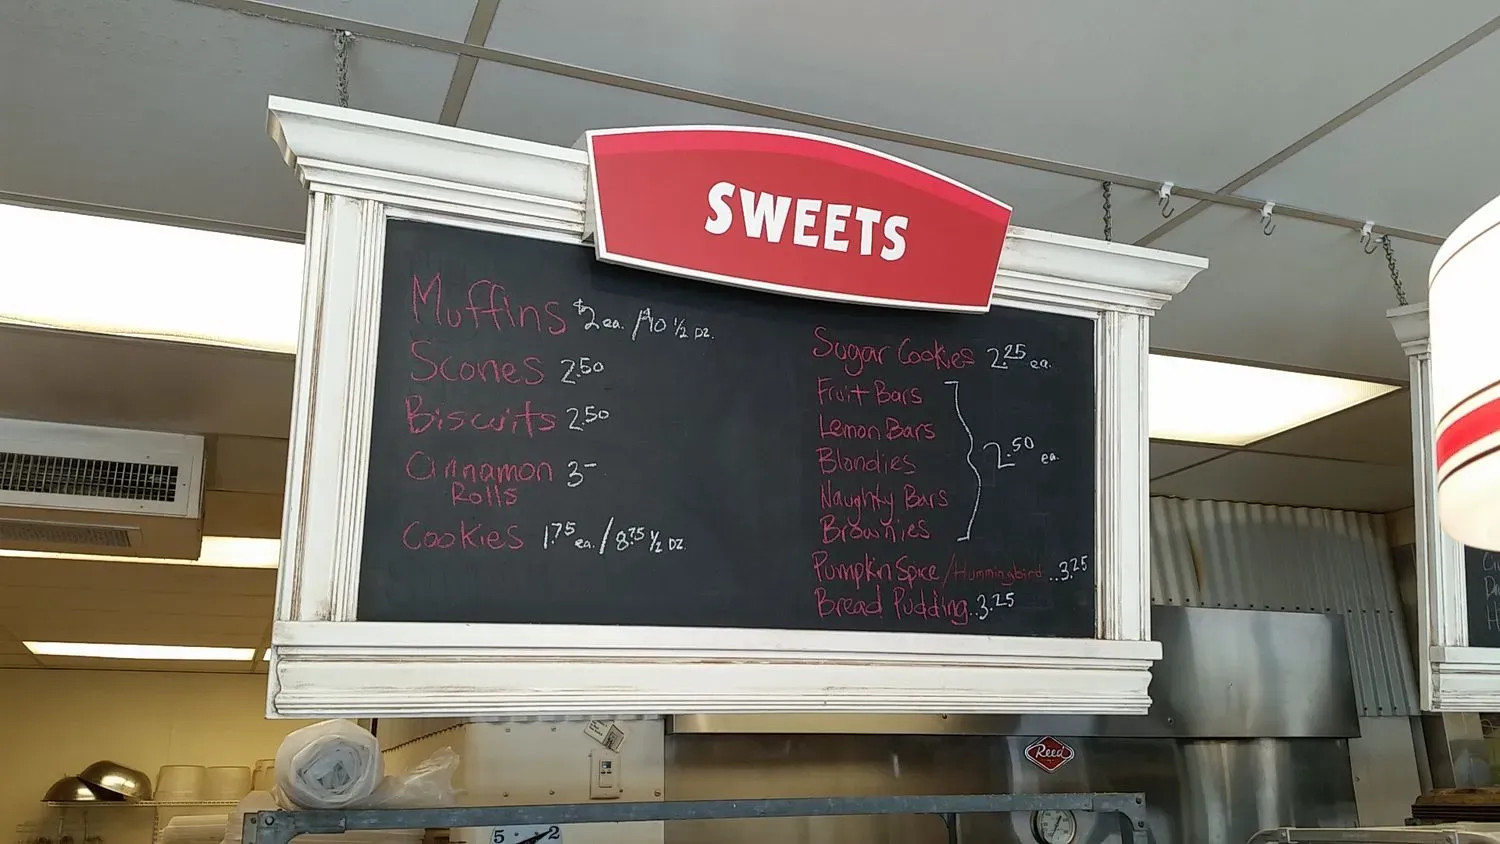 SWEETS
Muffins $2 ea. / $10 1/2 DZ.
Scones 2.50
Biscuits 2.50
Cinnamon 3-
Rolls
Cookies 1.75 ea. / 8.75 1/2 DZ.
Sugar Cookies 2.25 ea.
Fruit Bars
Lemon Bars
Blondies
Naughty Bars
Brownies
2.50 ea.
Pumpkin Spice / Hummingbird ..3.25
Bread Pudding..3.25
Reed
5 2